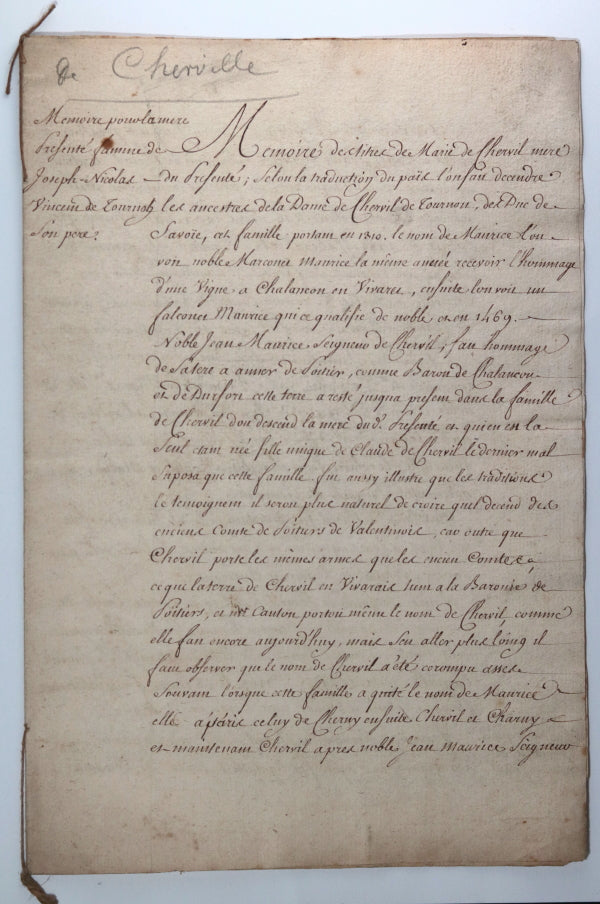 de Cherville
Memoire pour la mere
Presenté famme de
Joseph-Nicolas
Vincent de Tournon
Son pere.
Memoire des titres de Marie de Chervil mere
du Presenté; Selon la traduction du païs l'on fait decendre
les ancestres de la Dame de Chervil de Tournon, des Duc de
Savoie, cet famille portant en 1310. le nom de Maurice l'on
voit noble Marconet Maurice la même année recevoir l'hommage
d'une Vigne a Chalancon en Vivaret, ensuite l'on voit un
falconet Maurice qui ce qualifie de noble et en 1469.
Noble Jean Maurice Seigneur de Chervil, fait hommage
de Sa terre a aimer de Poitier, comme Baron de Chalancon
et de Durfort cette terre a resté jusqua present dans la famille
de Chervil dou descend la mere dud. Presenté et qui en est la
Seul etant née fille unique de Claude de Chervil le dernier mal
Suposa que cette famille fut aussy illustre que les traditions
le temoignent il seroit plus naturel de croire quel decend des
enciens Comte de Poitiers de Valentinois, car outre que
Chervil porte les mêmes armes que les encien Comtes
ce que la terre de Chervil en Vivarais tient a la Baronie de
Poitiers, et Canton portoit même le nom de Chervil comme
elle fait encore aujourd'huy, mais Sen aller plus loing il
faut observer que le nom de Chervil a été corompu asses
Souvant lorsque cette famille a quité le nom de Maurice
elle a pris celuy de Cherny ensuite Chervil et Charny
et maintenant Chervil apres noble Jean Maurice Seigneur